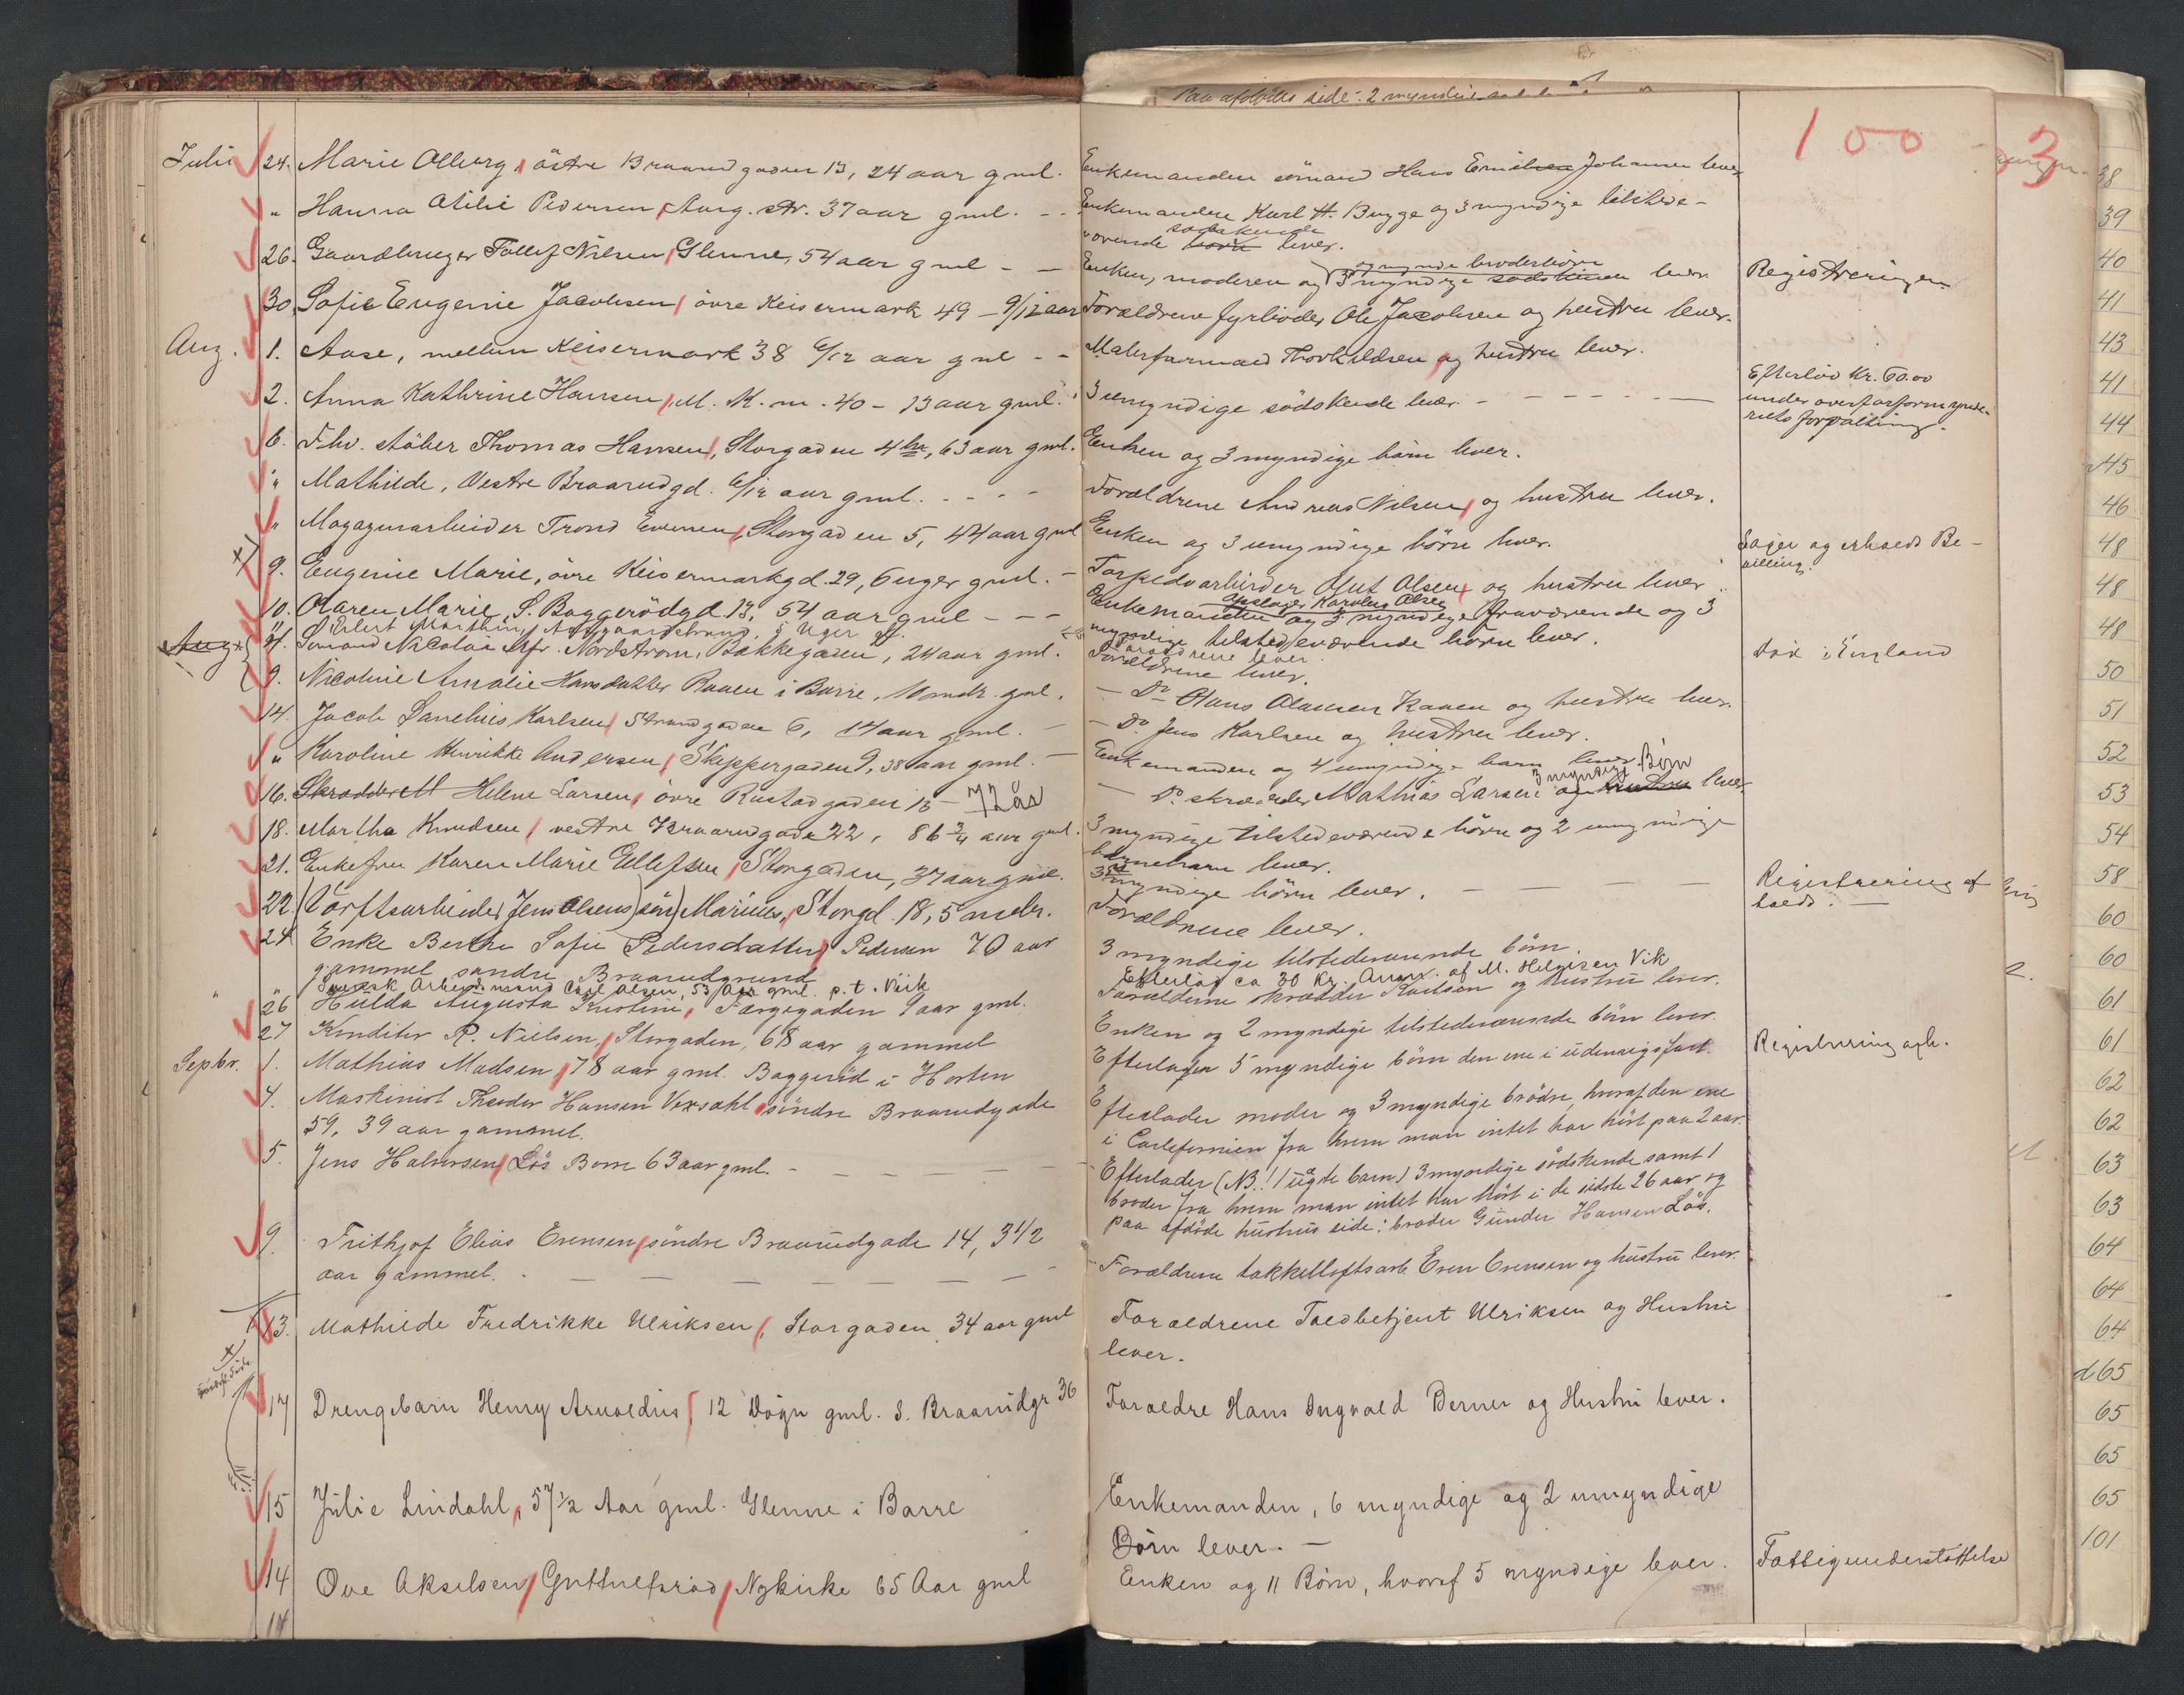 Paa afdødes side: 2 myndige
100
3
Juli 24. Marie Olberg, østre Braarudgaden 13, 24 aar gml. Enkemanden sømand Hans Emilsen Johansen lever
" Hanna Otilie Pedersen, Aasg. str. 37 aar gml. - - Enkemanden Karl H. Bugge og 3 myndige tilstede-
værende børn sødskende lever.
26. Gaardbruger Tollef Nilsen, Glenne, 54 aar gml - - Enken, moderen og 3 myndige sødskende og mynd. broderbørn lever. Registrering
30. Sofie Eugenie Jacobsen, øvre Keisermark 49 - 9/12 aar Forældrene fyrbøder Ole Jacobsen og hustru lever.
Aug. 1. Aase, mellum Keisermark 38 6/12 aar gml - - Malerformand Thorkildsen og hustru lever.
2. Anna Kathrine Hansen, M. K. m. 40 - 13 aar gml. 3 umyndige sødskende lever - - - - - Efterlod Kr. 60.00
under overformynde-
riets forvaltning.
6. Fhv. støber Thomas Hansen, Storgaden 4, 63 aar gml. Enken og 3 myndige børn lever.
" Mathilde, Vestre Braarudgd. 6/12 aar gml. - - - - Forældrene Andreas Nilsen og hustru lever.
" Magazinarbeider Trond Evensen, Storgaden 5, 44 aar gml Enken og 3 umyndige børn lever. Søger og erholdt Be-
villing.
9. Eugenie Marie, øvre Keisermarkgd. 29, 6 uger gml. - Torpedoarbeider Oluf Olsen og hustru lever
10. Karen Marie, S. Baggerødgd 13, 54 aar gml - - - Enkemanden og 3 myndige fraværende og 3
myndige tilstedeværende børn lever.
" Eilert Marthin, Aasgaardstrand, 5 Uger gl. Gjæslager Karolius Olsen Forældrene lever.
Aug. Sømand Nicolai Alfr. Nordstrøm, Bakkegaden, 24 aar gml. Forældrene lever. Død i England
9. Nicoline Amalie Hansdatter Raaen i Borre, 10 mdr. gml. - Do Hans Olausen Raaen og hustru lever.
14. Jacob Danelius Karlsen, Strandgaden 6, 14 aar gml. - - Do. Jens Karlsen og hustru lever.
" Karoline Henrikke Andersen, Skippergaden 9, 38 aar gml. - Enkemanden og 4 umyndige barn lever.
16. Skrædder M Helene Larsen, øvre Rustadgaden 13 - 72 år - Do. skrædder Mathias Larsen og hustru 3 myndige Børn lever.
18. Marthe Knudsen, vestre Braarudgade 22, 86 3/4 aar gml. 3 myndige tilstedeværende børn og 2 umyndige
børnebarn lever.
21. Enkefru Karen Marie Ellefsen, Storgaden, 37 aar gml. 3 umyndige børn lever. - - - - Registrering af
holdt. -
22. (Værftsarbeider Jens Olsens) søn) Marius, Storgd. 18, 5 mdr. Forældrene lever.
24 Enke Berthe Sofie Pedersdatter Pedersen 70 aar 3 myndige tilstedeværende børn.
gammel søndre Braarudgrund
" Svensk Arbeidsmand Carl Olsen, 53 Aar gml. p. t. Viik Efterløg ca 30 Kr. Anm. af M. Helgesen Vik
26 Hulda Augusta Kristine, Færgegaden 1 aar gml. Forældrene skrædder Karlsen og hustru lever.
27 Konditor P. Nielsen, Storgaden, 68 aar gammel Enken og 2 myndige tilstedeværende børn lever. Registrering afh.
Sepbr. 1. Mathias Madsen, 78 aar gml. Baggerød i Horten Efterlader 5 myndige børn den ene i udenrigsfart.
4. Maskinist Theodor Hansen Vexdahl, søndre Braarudgade Efterlader moder og 3 myndige brødre, hvoraf den ene
59, 39 aar gammel. i Carlefornien fra hvem man intet har hørt paa 2 aar.
5. Jens Halvorsen, Løs Borre 63 aar gml. - - - - Efterlader (NB.! 1 uægte barn) 3 myndige sødskende samt 1
broder fra hvem man intet har hørt i de sidste 26 aar og
paa afdøde hustrus side: broder Gunder Hansen Løs.
9. Frithjof Elias Evensen, søndre Braarudgade 14, 3 1/2 - Forældrene takkelloftsarb. Even Evensen og hustru lever.
aar gammel. - - - - - - -
13. Mathilde Fredrikke Ulriksen, Storgaden 34 aar gml Forældrene Toldbetjent Ulriksen og Hustru
lever.
17 Drengebarn Henry Arnoldus, 12 Døgn gml. S. Braarudgr 36 Forældre Hans Ingvald Berner og Hustru lever.
15 Julie Lindahl, 57 1/2 Aar gml. Glenne i Borre Enkemanden, 6 myndige og 2 umyndige
Børn lever. -
14 Ove Akselsen, Guttulfsrød, Nykirke 65 Aar gml Enken og 11 Børn, hvoraf 5 myndige lever. Fattigunderstøttelse
14
38
39
40
41
43
41
44
45
46
48
48
48
50
51
52
53
54
58
60
60
61
61
62
62
63
63
64
64
64
65
65
65
65
101